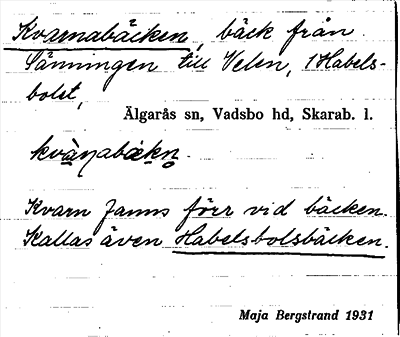 Kvarnabäcken, bäck från
Sänningen till Velen, 1 Habels-
bolet,
Älgarås sn, Vadsbo hd, Skarab. l.
Kvarn fanns förr vid bäcken.
Kallas även Habelsbolsbäcken.
Maja Bergstrand 1931